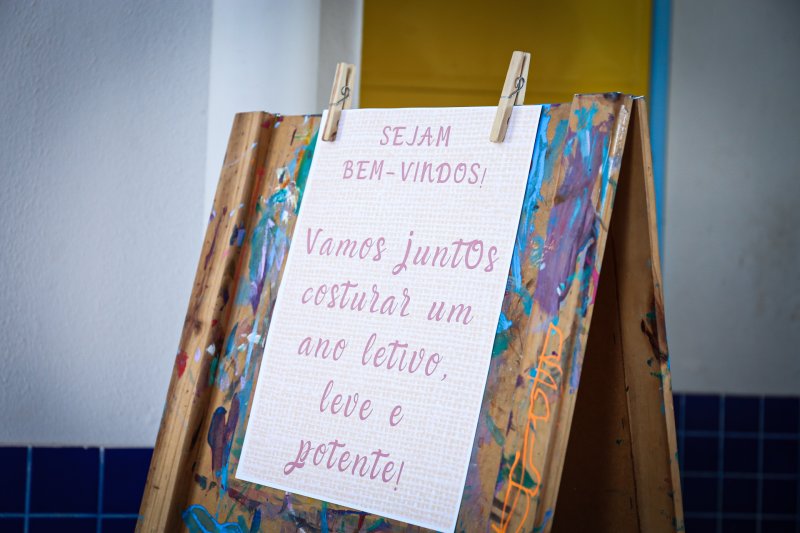 SEJAM
BEM-VINDOS!
Vamos juntos
costurar um
ano letivo,
leve e
potente!